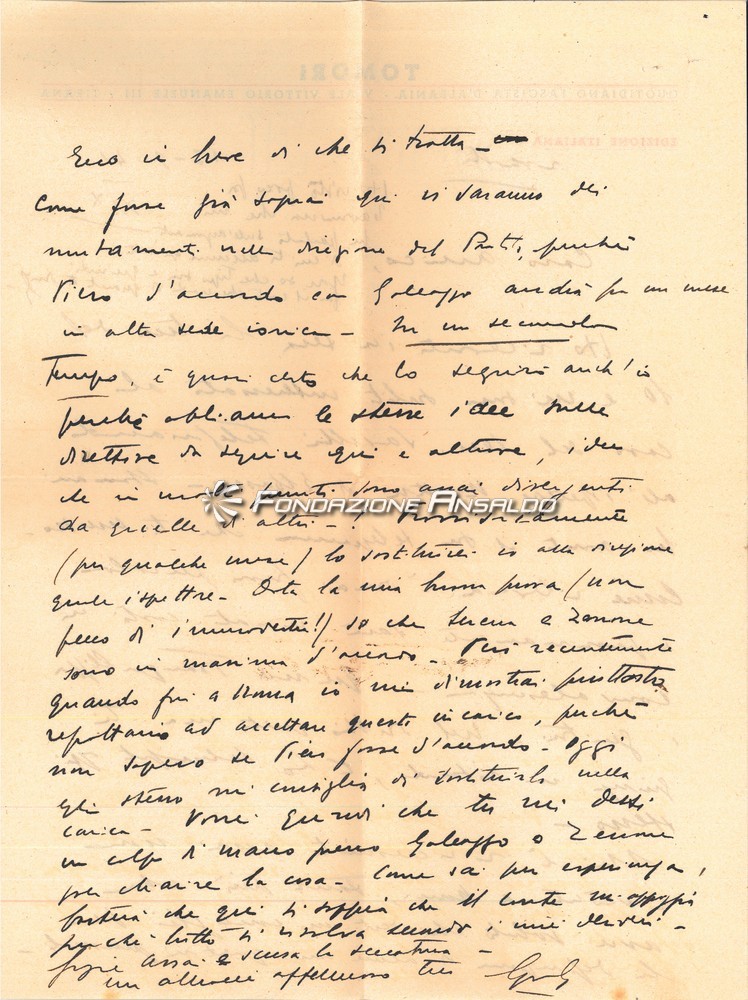 TOMORI
QUOTIDIANO FASCISTA D'ALBANIA - VIALE VITTORIO EMANUELE III - TIRANA
EDIZIONE ITALIANA
Ecco in breve di che si tratta -
Come forse già saprai qui vi saranno dei
mutamenti nella direzione del Partito, perché
Piero d'accordo con Galeazzo andrà fra un mese
in altra sede - In un secondo
Tempo, è quasi certo che lo seguirò anch'io
perché abbiamo le stesse idee sulle
direttive da seguire qui e altrove, idee
che in molti punti sono assai divergenti
da quelle di altri - Provvisoriamente
(per qualche mese) lo sostituirei io alla direzione
quale ispettore - Data la mia buona prova (non
pecco di immodestia!) so che Serena e Zenone
sono in massima d'accordo - Però recentemente
quando fui a Roma io mi dimostrai piuttosto
reluttante ad accettare questo incarico, perché
non sapevo se Piero fosse d'accordo - Oggi
egli stesso mi consiglia di sostituirlo nella
carica - Vorrei quindi che tu mi dessi
un colpo di mano presso Galeazzo o Zenone
per chiarire la cosa - Come sai per esperienza,
basterà che qui si sappia che il Conte mi appoggia
perché tutto si risolva secondo i miei desideri -
Grazie assai e scusa la seccatura -
un abbraccio affettuoso tuo
FONDAZIONE ANSALDO